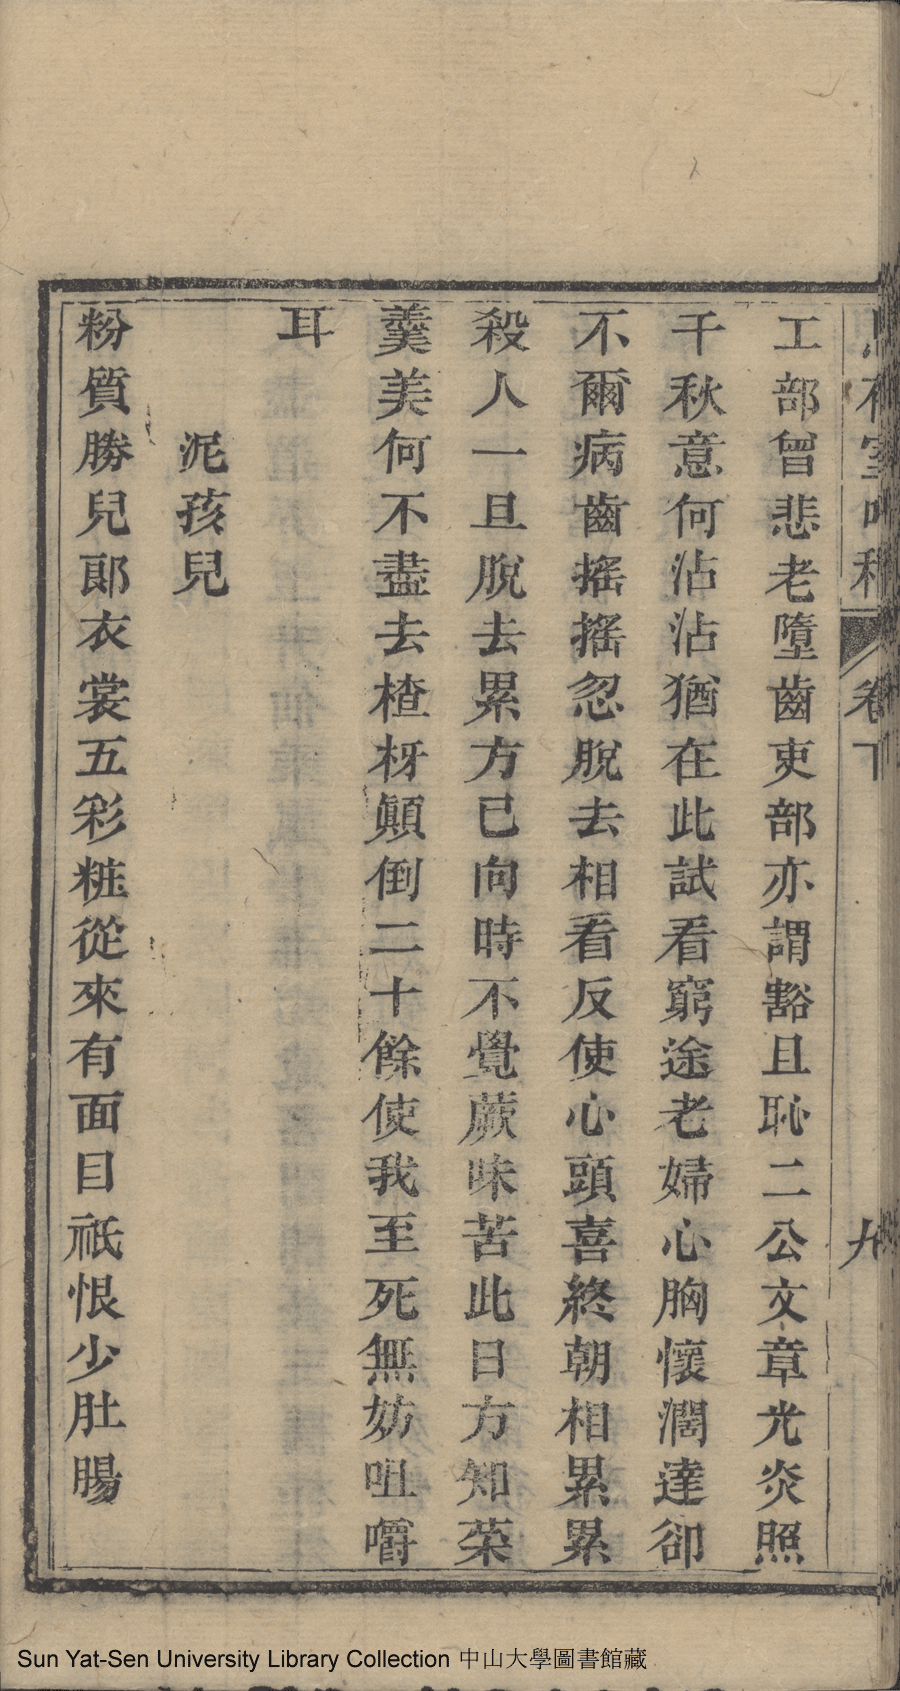 卷下 九
工部曾悲老墮齒吏部亦謂豁且恥二公文章光炎照
千秋意何沾沾猶在此試看窮途老婦心胸懷濶達卻
不爾病齒搖搖忽脫去相看反使心頭喜終朝相累累
殺人一旦脫去累方已向時不覺蕨味苦此日方知菜
羹美何不盡去楂枒顛倒二十餘使我至死無妨咀嚼
耳
泥孩兒
粉質勝兒郞衣裳五彩粧從來有面目祇恨少肚腸
Sun Yat-Sen University Library Collection 中山大學圖書館藏